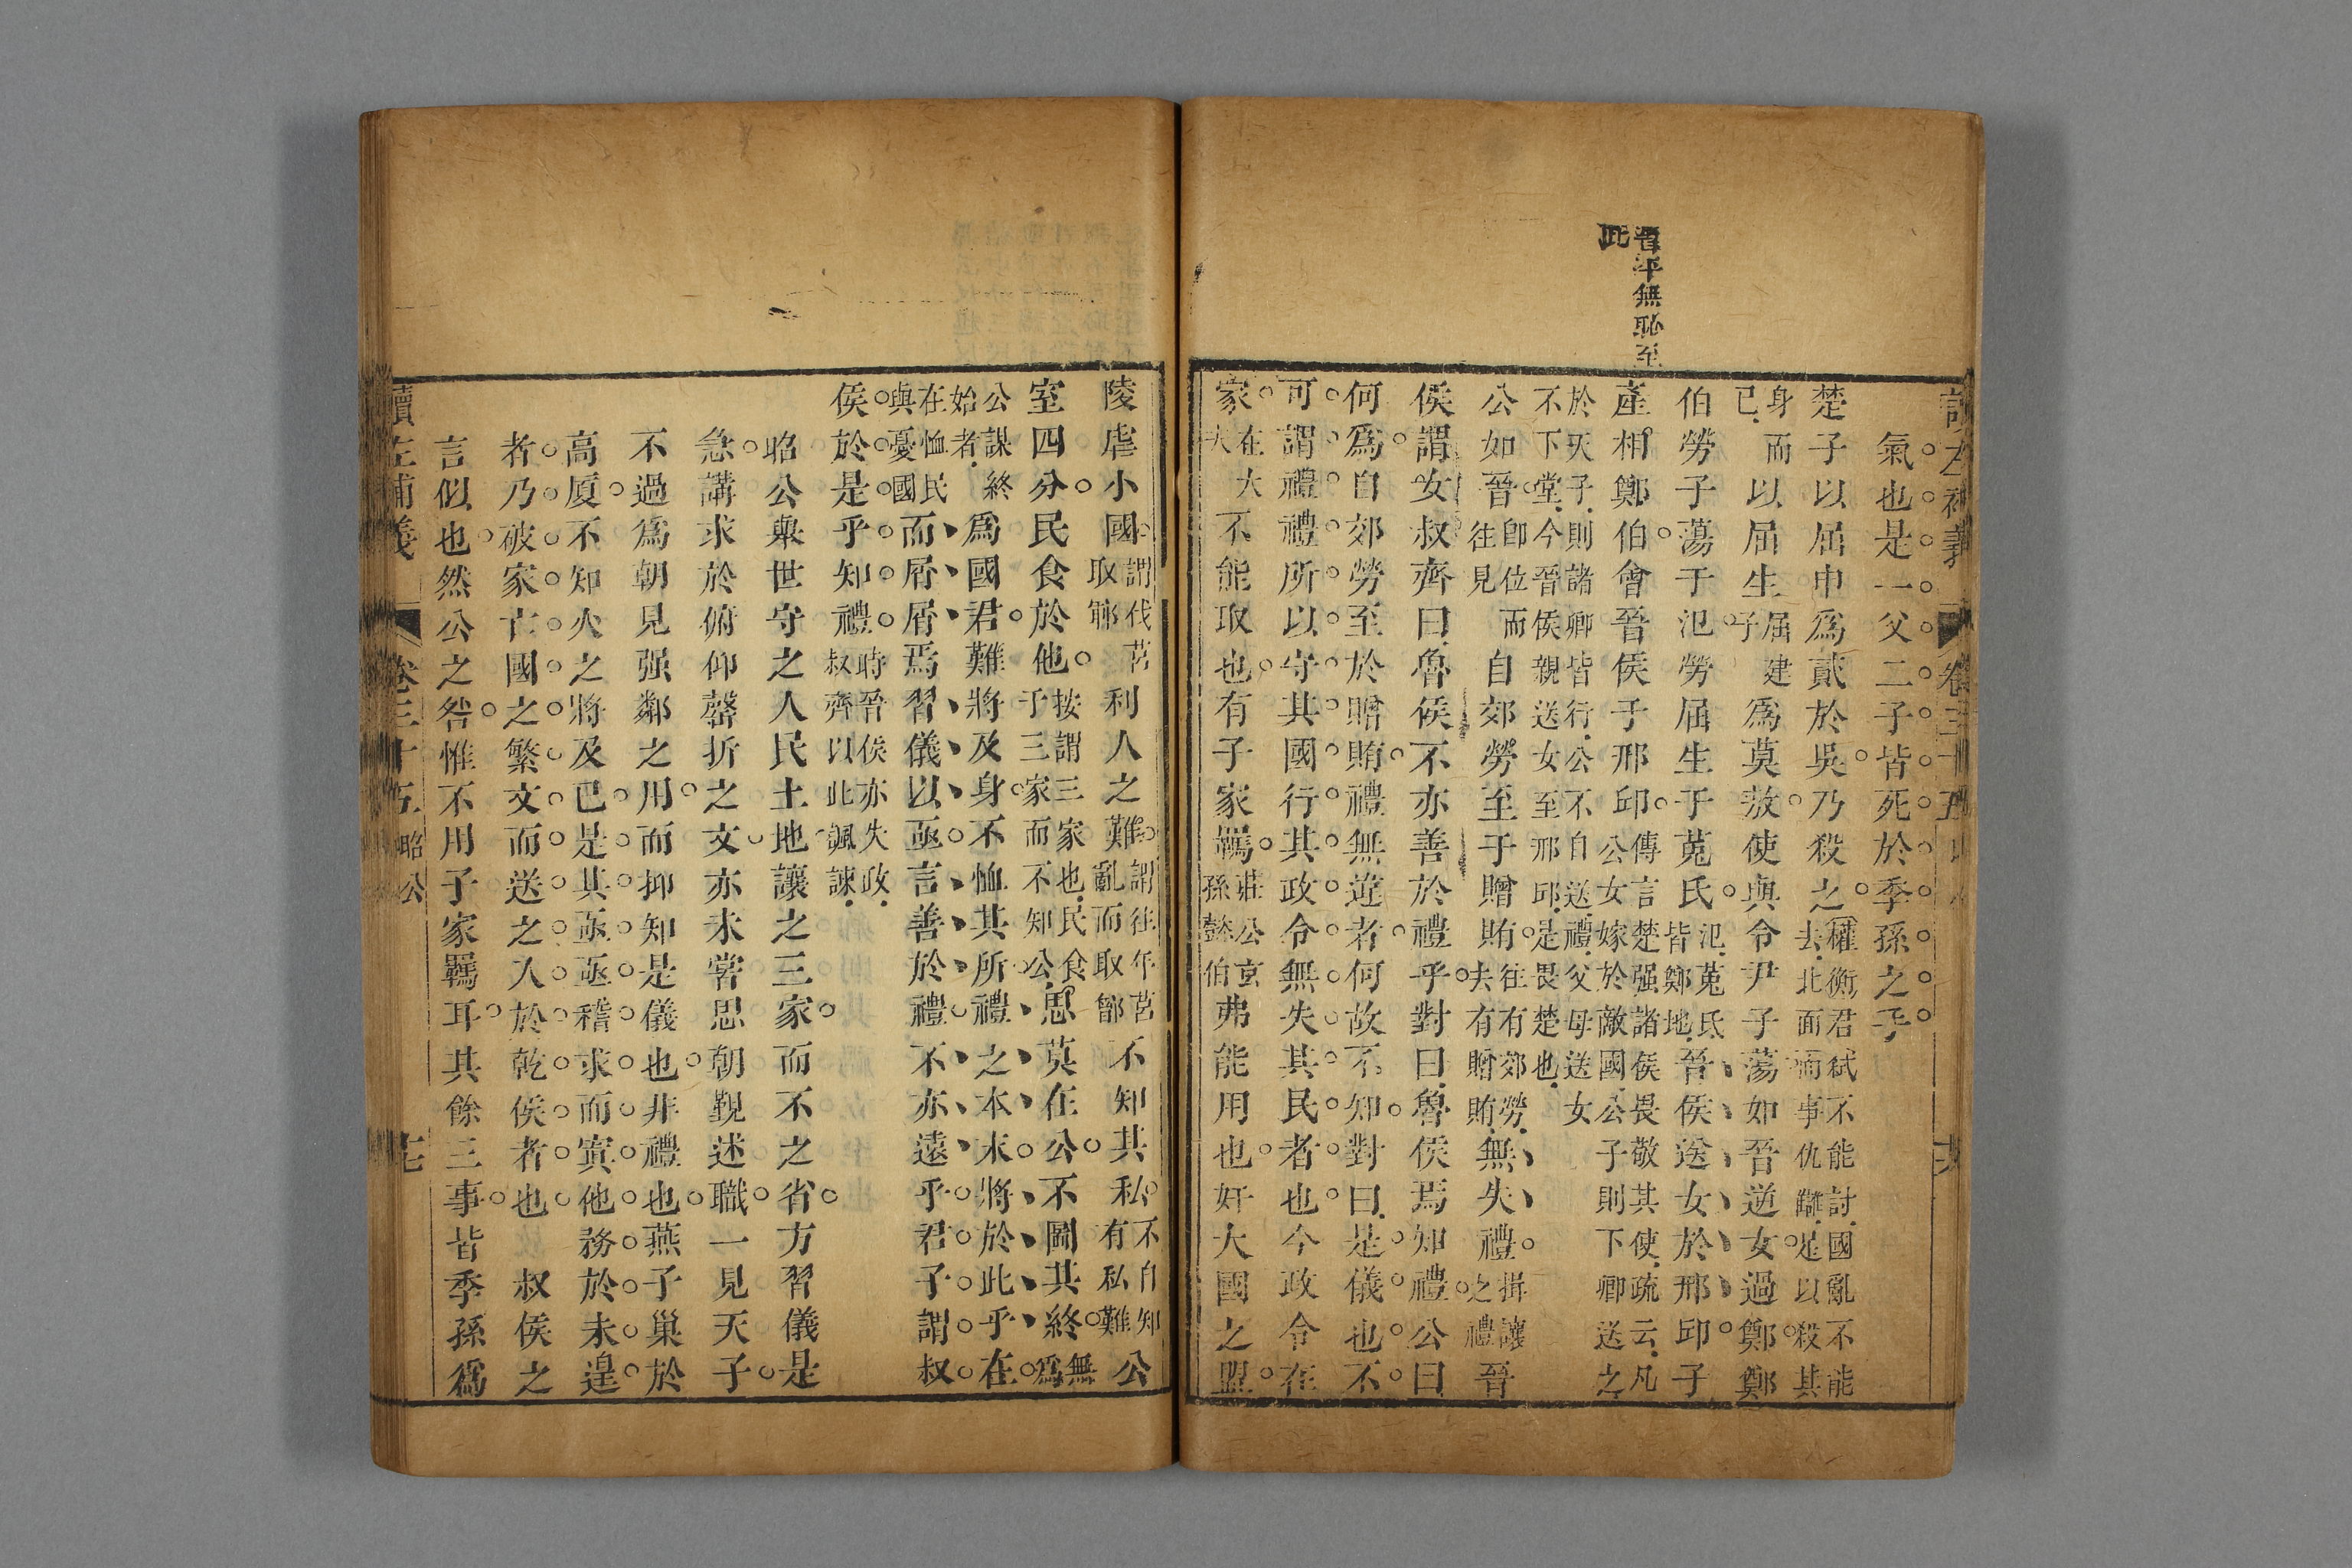 晋平無恥至
此
讀左補義 卷三十五
氣也是一父二子皆死於季孫之手
楚子以屈申為貳於吳乃殺之權衡君弑不能討國亂不能去北面而事仇讎是以殺其
身而已以屈生屈建子為莫敖使與令尹子蕩如晉逆女過鄭鄭
伯勞子蕩于氾勞屈生于菟氏氾菟氏皆鄭地晉侯送女於邢邱子
產相鄭伯會晉侯于邢邱傳言楚强諸侯畏敬其使疏云凡公女嫁於敵國公子則下卿送之
於天子則諸卿皆行公不自送禮父母送女不下堂今晉侯親送女至邢邱是畏楚也
公如晉即位而往見自郊勞至于贈賄往有郊勞去有贈賄無失禮揖讓之禮晉
侯謂女叔齊曰魯侯不亦善於禮乎對曰魯侯焉知禮公曰
何為自郊勞至於贈賄禮無違者何故不知對曰是儀也不
可謂禮禮所以守其國行其政令無失其民者也今政令在
家在大夫不能取也有子家羈莊公玄孫懿伯弗能用也奸大國之盟
陵虐小國謂伐莒取鄆利人之難謂往年莒亂而取鄫不知其私不自知有私難公
室四分民食於他按謂三家也民食于三家而不知公思莫在公不圖其終無為
公謀終始者為國君難將及身不恤其所禮之本末將於此乎在
在恤民與憂國而屑屑焉習儀以亟言善於禮不亦遠乎君子謂叔
侯於是乎知禮時晉侯亦失政叔齊以此諷諫
昭公棄世守之人民土地讓之三家而不之省方習儀是
急講求於俯仰磬折之文亦未嘗思朝覲述職一見天子
不過為朝見强鄰之用而抑知是儀也非禮也燕子巢於
高厦不知火之將及已是其亟亟稽求而寘他務於未遑
者乃破家亡國之繁文而送之入於乾侯者也 叔侯之
言似也然公之咎惟不用子家羈耳其餘三事皆季孫為
讀左補義 卷三十五 昭公 七